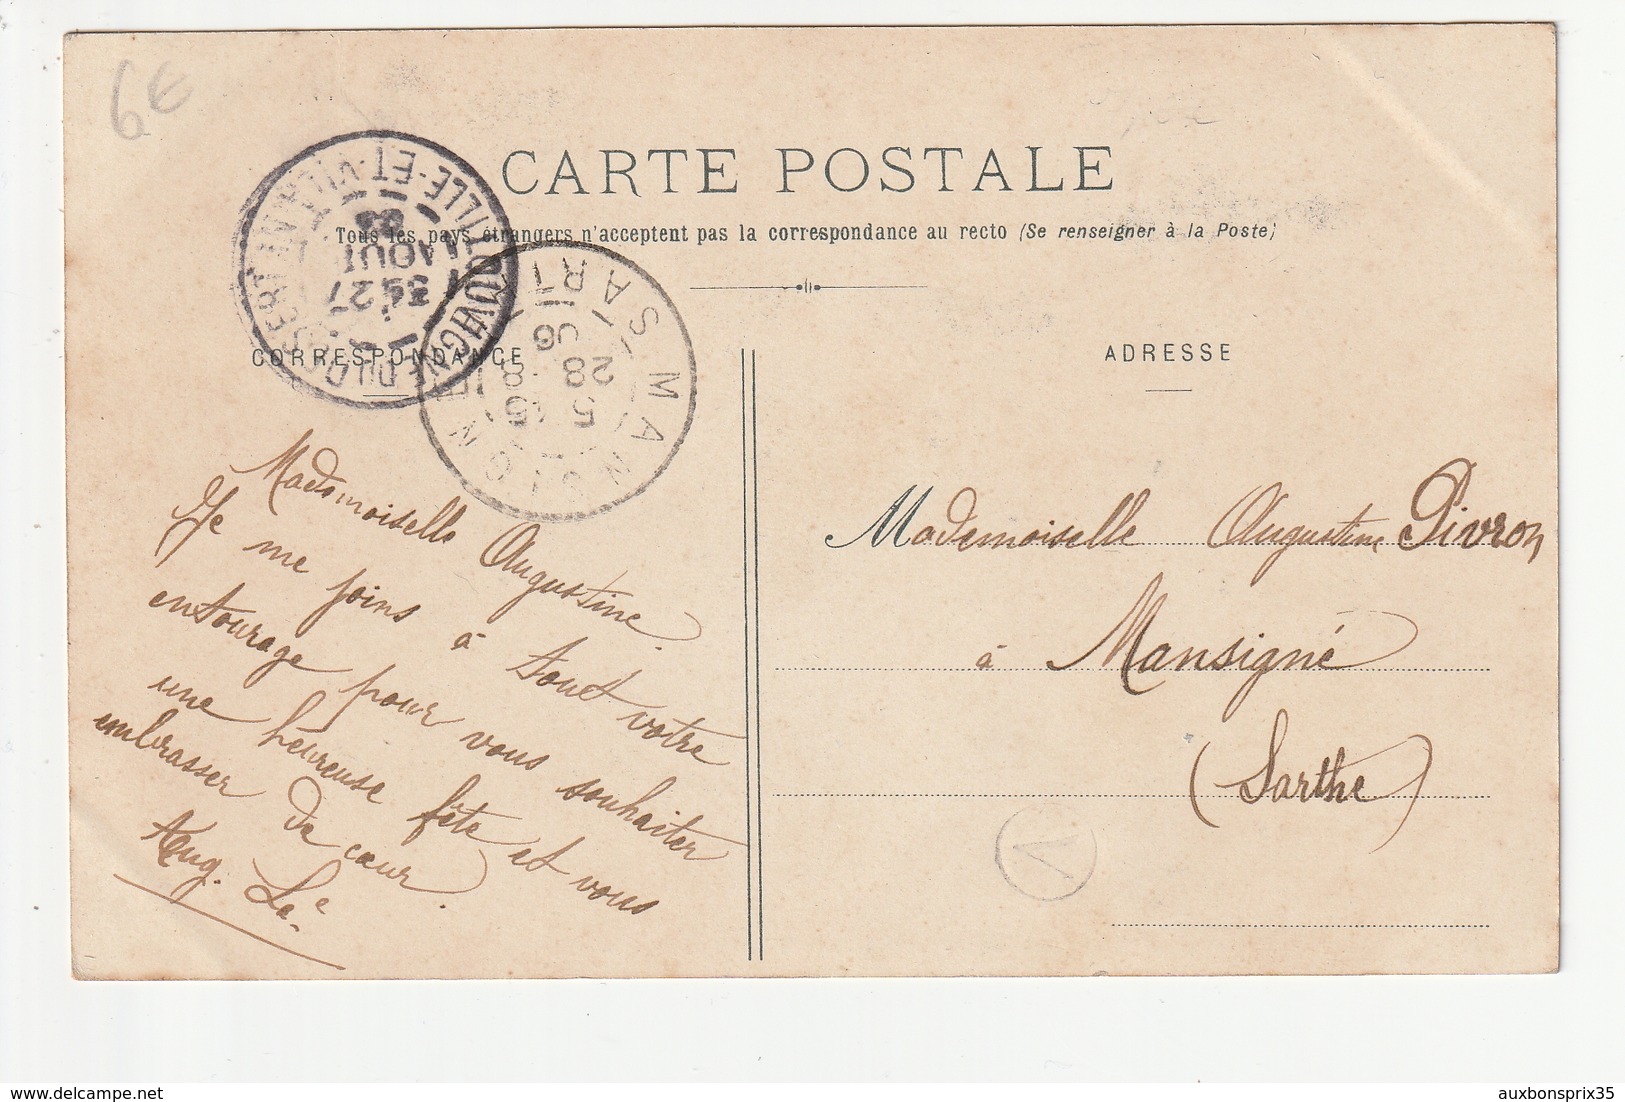 6€
CARTE POSTALE
Tous les pays étrangers n'acceptent pas la correspondance au recto (Se renseigner à la Poste)
LOUVIGNÉ-DU-DÉSERT
ILLE-ET-VIL
27
AOUT
MANSIGNÉ
SARTHE
28
8
06
CORRESPONDANCE
ADRESSE
Mademoiselle Augustine.
Je me joins à tout votre
entourage pour vous souhaiter
une heureuse fête et vous
embrasser de cœur.
Aug. Le
Mademoiselle Augustine Pivron
à Mansigné
(Sarthe)
www.delcampe.net
auxbonsprix35